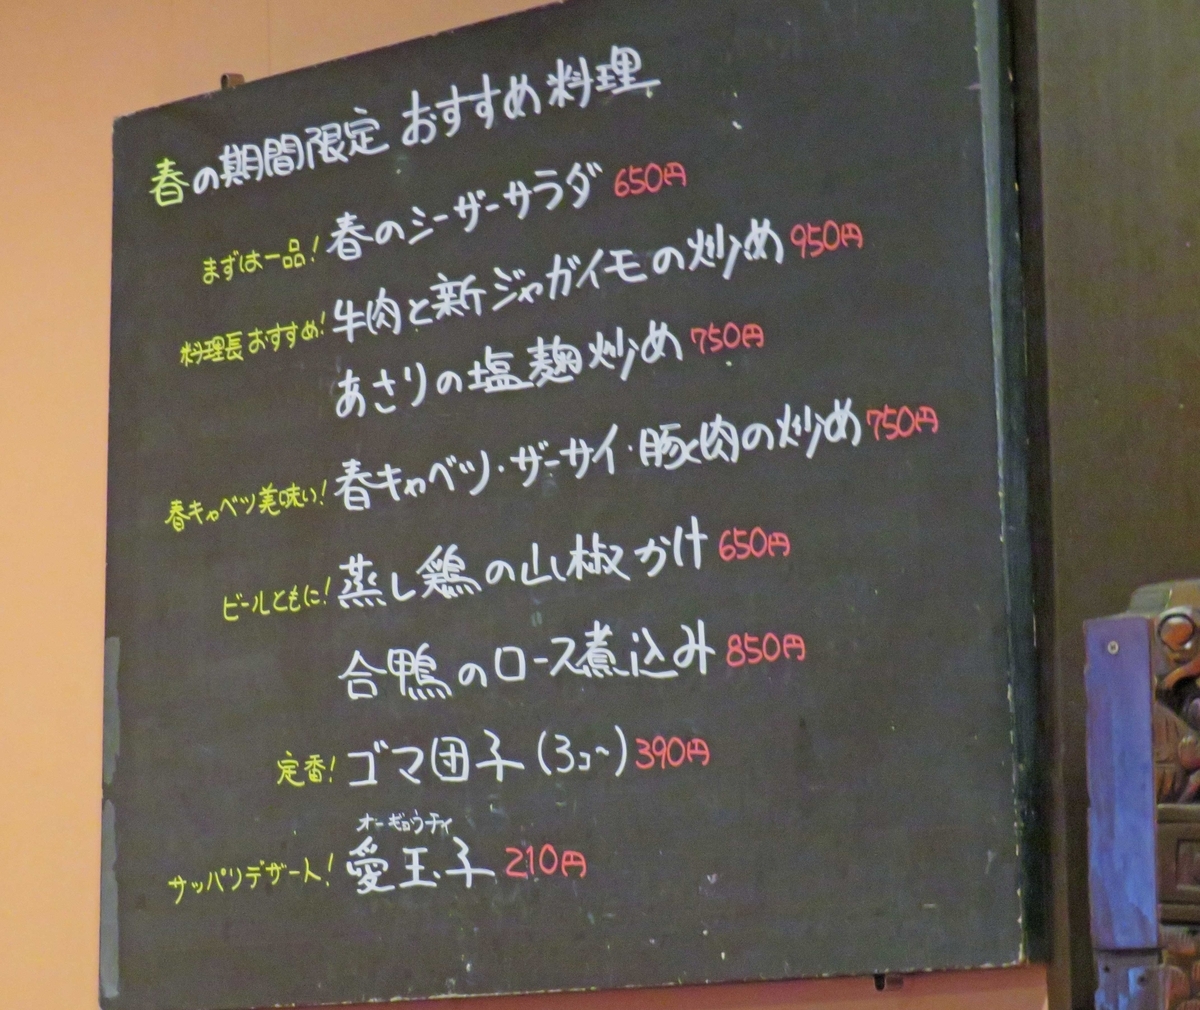 春の期間限定 おすすめ料理
まずは一品! 春のシーザーサラダ 650円
料理長おすすめ! 牛肉と新ジャガイモの炒め 950円
あさりの塩麹炒め 750円
春キャベツ美味い! 春キャベツ・ザーサイ・豚肉の炒め 750円
ビールともに! 蒸し鶏の山椒かけ 650円
合鴨のロース煮込み 850円
定番! ゴマ団子(3コ〜) 390円
オーギョウチィ
サッパリデザート! 愛玉子 210円